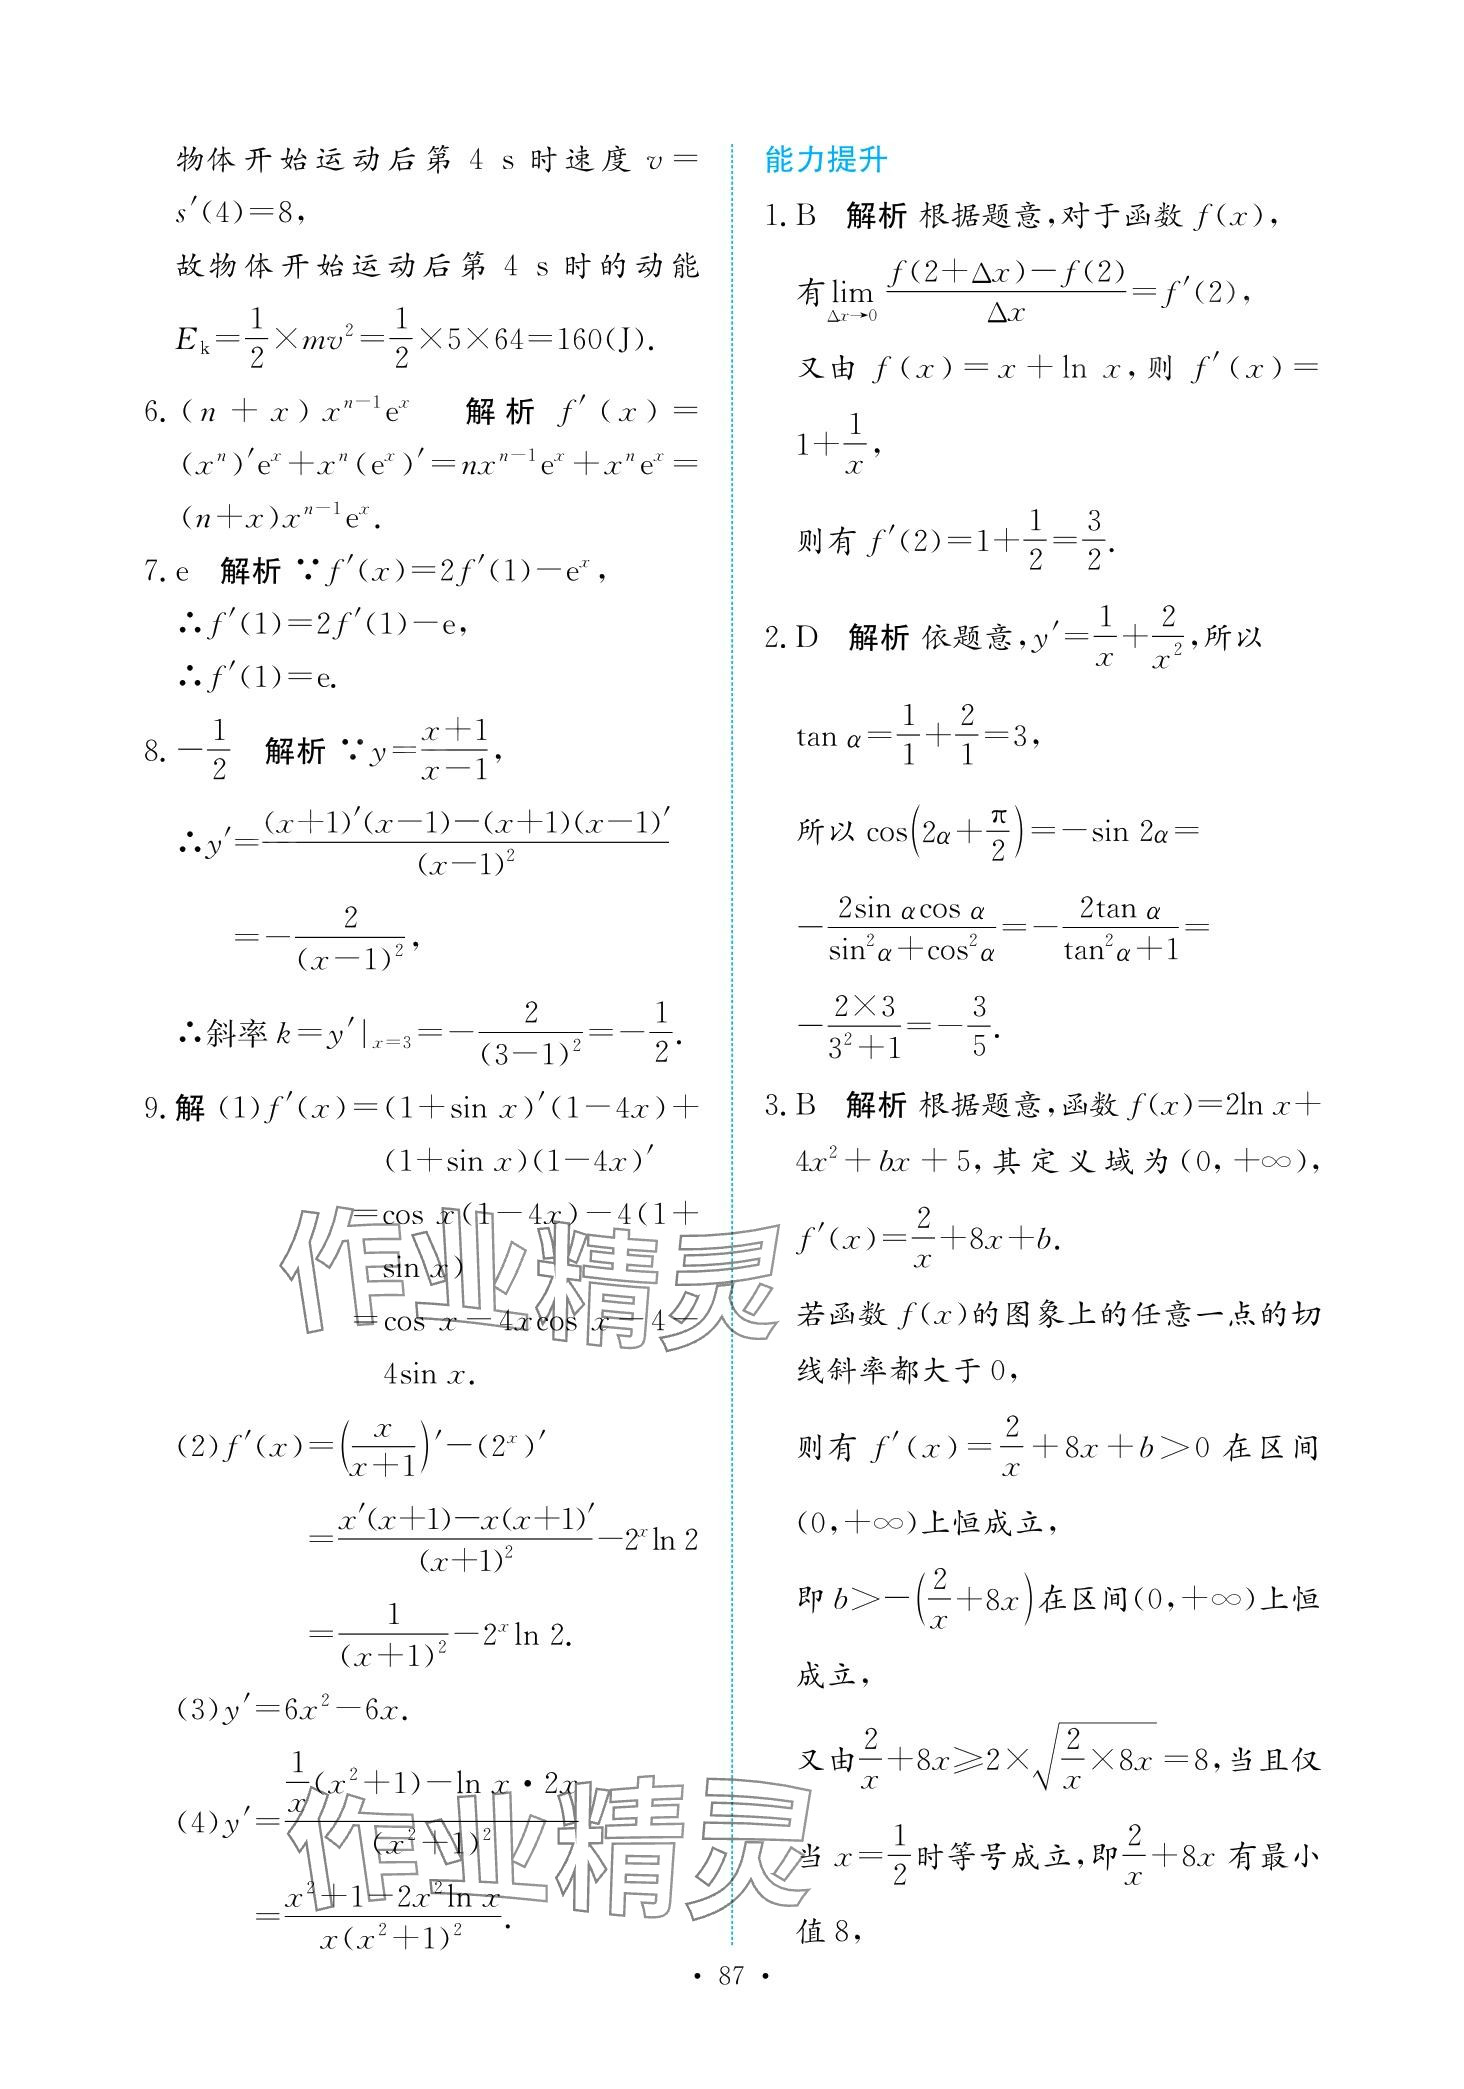 物体开始运动后第 4 s 时速度 v=
s′(4)=8,
故物体开始运动后第 4 s 时的动能
E_k=1/2×mv²=1/2×5×64=160(J).
6. (n+x)x^{n-1}e^x 解析 f′(x)=
(x^n)′e^x+x^n(e^x)′=nx^{n-1}e^x+x^ne^x=
(n+x)x^{n-1}e^x.
7. e 解析 ∵f′(x)=2f′(1)-e^x,
∴f′(1)=2f′(1)-e,
∴f′(1)=e.
8. -1/2 解析 ∵y=(x+1)/(x-1),
∴y′=((x+1)′(x-1)-(x+1)(x-1)′)/(x-1)²
=-2/(x-1)²,
∴斜率 k=y′|_{x=3}=-2/(3-1)²=-1/2.
9. 解 (1)f′(x)=(1+sin x)′(1-4x)+
(1+sin x)(1-4x)′
=cos x(1-4x)-4(1+
sin x)
=cos x-4xcos x-4-
4sin x.
(2)f′(x)=(x/(x+1))′-(2^x)′
=(x′(x+1)-x(x+1)′)/(x+1)²-2^xln 2
=1/(x+1)²-2^xln 2.
(3)y′=6x²-6x.
(4)y′=(1/x(x²+1)-ln x·2x)/(x²+1)²
=(x²+1-2x²ln x)/(x(x²+1)²).
能力提升
1. B 解析 根据题意,对于函数 f(x),
有 lim_{Δx→0} (f(2+Δx)-f(2))/Δx=f′(2),
又由 f(x)=x+ln x,则 f′(x)=
1+1/x,
则有 f′(2)=1+1/2=3/2.
2. D 解析 依题意,y′=1/x+2/x²,所以
tan α=1/1+2/1=3,
所以 cos(2α+π/2)=-sin 2α=
-(2sin αcos α)/(sin²α+cos²α)=-(2tan α)/(tan²α+1)=
-(2×3)/(3²+1)=-3/5.
3. B 解析 根据题意,函数 f(x)=2ln x+
4x²+bx+5,其定义域为(0,+∞),
f′(x)=2/x+8x+b.
若函数 f(x)的图象上的任意一点的切
线斜率都大于 0,
则有 f′(x)=2/x+8x+b>0 在区间
(0,+∞)上恒成立,
即 b>-(2/x+8x)在区间(0,+∞)上恒
成立,
又由2/x+8x≥2×√(2/x×8x)=8,当且仅
当 x=1/2时等号成立,即2/x+8x 有最小
值 8,
· 87 ·
作业精灵
作业精灵